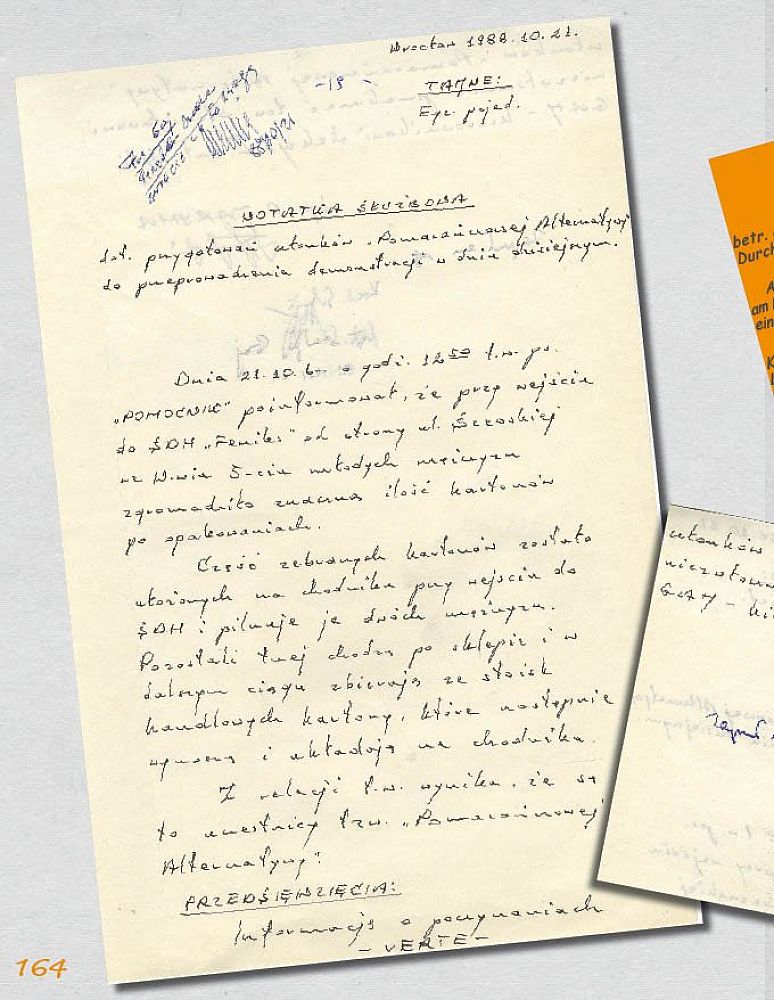 Wrocław 1988.10.21.
- 13 -
TAJNE:
Egz. pojed.
NOTATKA SŁUŻBOWA
dot. przygotowań członków „Pomarańczowej Alternatywy"
do przeprowadzenia demonstracji w dniu dzisiejszym.
Dnia 21.10. br. o godz. 12⁵⁰ t.w. ps.
„POMOCNIK" poinformował, że przy wejściu
do ŚDH „Feniks" od strony ul. Szewskiej
we W-wiu 5-ciu młodych mężczyzn
zgromadziło znaczną ilość kartonów
po opakowaniach.
Część zebranych kartonów zostało
ułożonych na chodniku przy wejściu do
ŚDH i pilnuje je dwóch mężczyzn.
Pozostali trzej chodzą po sklepie i w
dalszym ciągu zbierają ze stoisk
handlowych kartony, które następnie
wynoszą i układają na chodniku.
Z relacji t.w. wynika, że są
to uczestnicy tzw. „Pomarańczowej
Alternatywy".
PRZEDSIĘWZIĘCIA:
Informację o poczynaniach
- VERTE -
164
betr.
Durch
A
am
ein
K
członków
GAM -